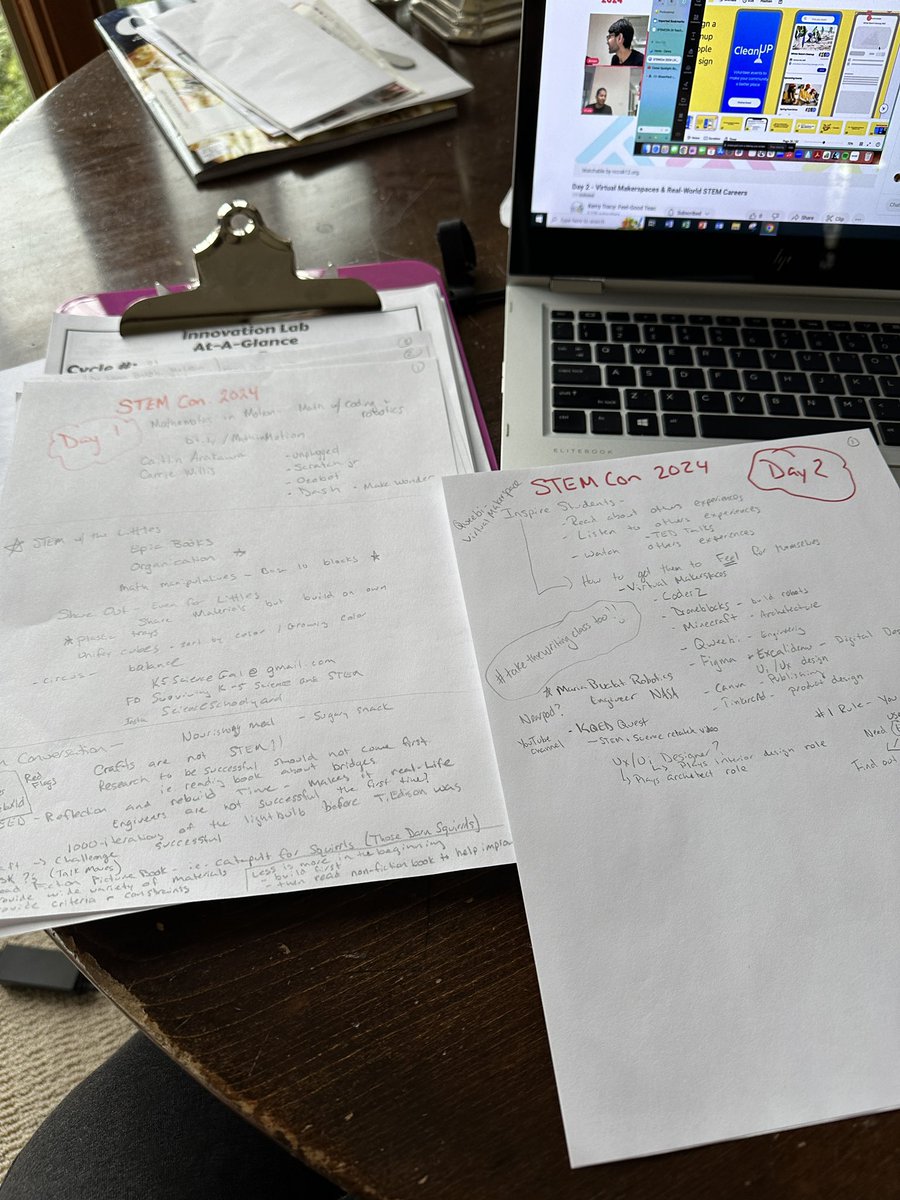 Innovation Lab
At-A-Glance
Cycle #:
STEM Con 2024
Day 1
Mathematics in Motion - Math of Coding + robotics
bit.ly/MathinMotion
Caitlin Arakawa
Carrie Willis
- unplugged
- Scratch Jr
- Ozobot
- Dash - Make Wonder
STEM w/ the Littles
Epic Books
Organization
Math manipulatives - Base 10 blocks
Share Out - Even for Littles
Share Materials but build on own
* plastic trays
Unifix cubes - sort by color / Growing color
- circus - balance
K5ScienceGal@gmail.com
FB Surviving K-5 Science and STEM
Insta ScienceSchoolyard
Nourishing meal - Sugary snack
Conversation -
Red Flags
Crafts are not STEM!!
Research to be successful should not come first
ie reading book about bridges
- Reflection and rebuild Time - Makes it real-life
Engineers are not successful the first time?
1000 iterations of the lightbulb before T. Edison was successful
→ Challenge
?s (Talk Moves)
Fiction Picture Book - ie. Catapult for Squirrels (Those Darn Squirrels)
provide wide variety of materials
provide criteria + constraints
Less is more in the beginning
- build first
- then read non-fiction book to help
STEM Con 2024
Day 2
Qweebi - Virtual Makerspace
Inspire Students -
- Read about others experiences
- Listen to others experiences
- TED Talks
- Watch others experiences
How to get them to Feel for themselves
- Virtual Makerspaces
- CoderZ
- Droneblocks - build robots
- Minecraft - Architecture
- Qweebi - Engineering
- Figma + Excalidraw - Digital
Ui/Ux design
- Canva - Publishing
- Tinkercad - product design
#take the writing class too!
* Maria Bucket Robotics
Engineer NASA
YouTube channel
- KQED Quest
- STEM + Science related video
Ux/Ui Designer?
↳ Plays interior design role
↳ Plays architect role
#1 Rule - You
Need
Find out
CleanUP
Volunteer events to make your community a better place
Day 2 - Virtual Makerspaces & Real-World STEM Careers
Subscribed
Share
Clip
Type here to search
hp
ELITEBOOK